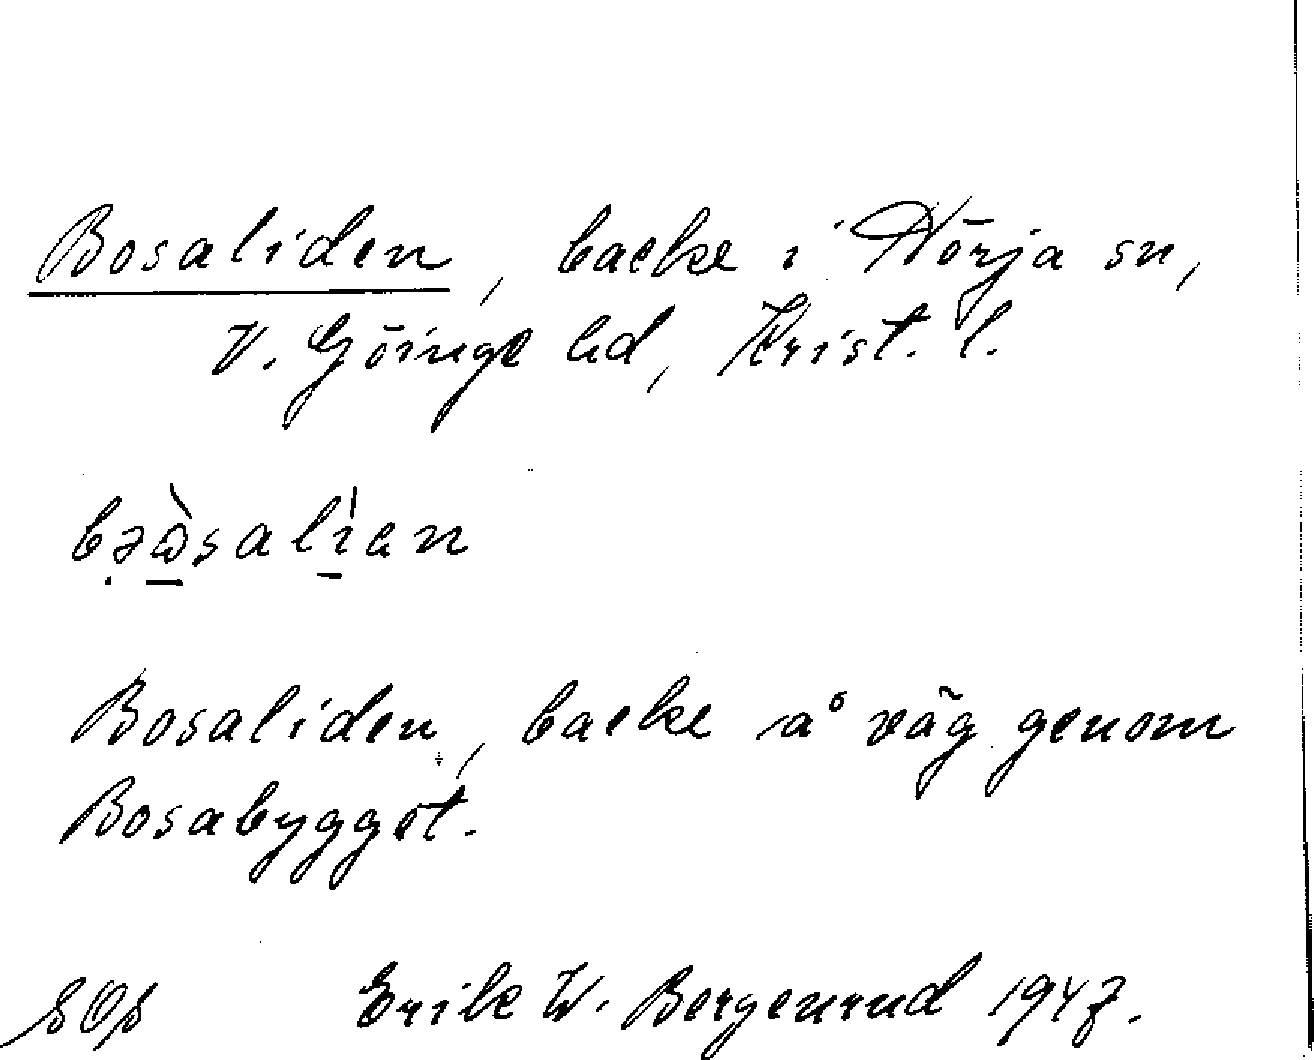 Bosaliden, backe i Nörja sn,
V. Göinge hd, Krist. l.
bə̣ὼ̱salì̱an
Bosaliden, backe å väg genom
Bosabygget.
Erik W. Bergenrud 1947.